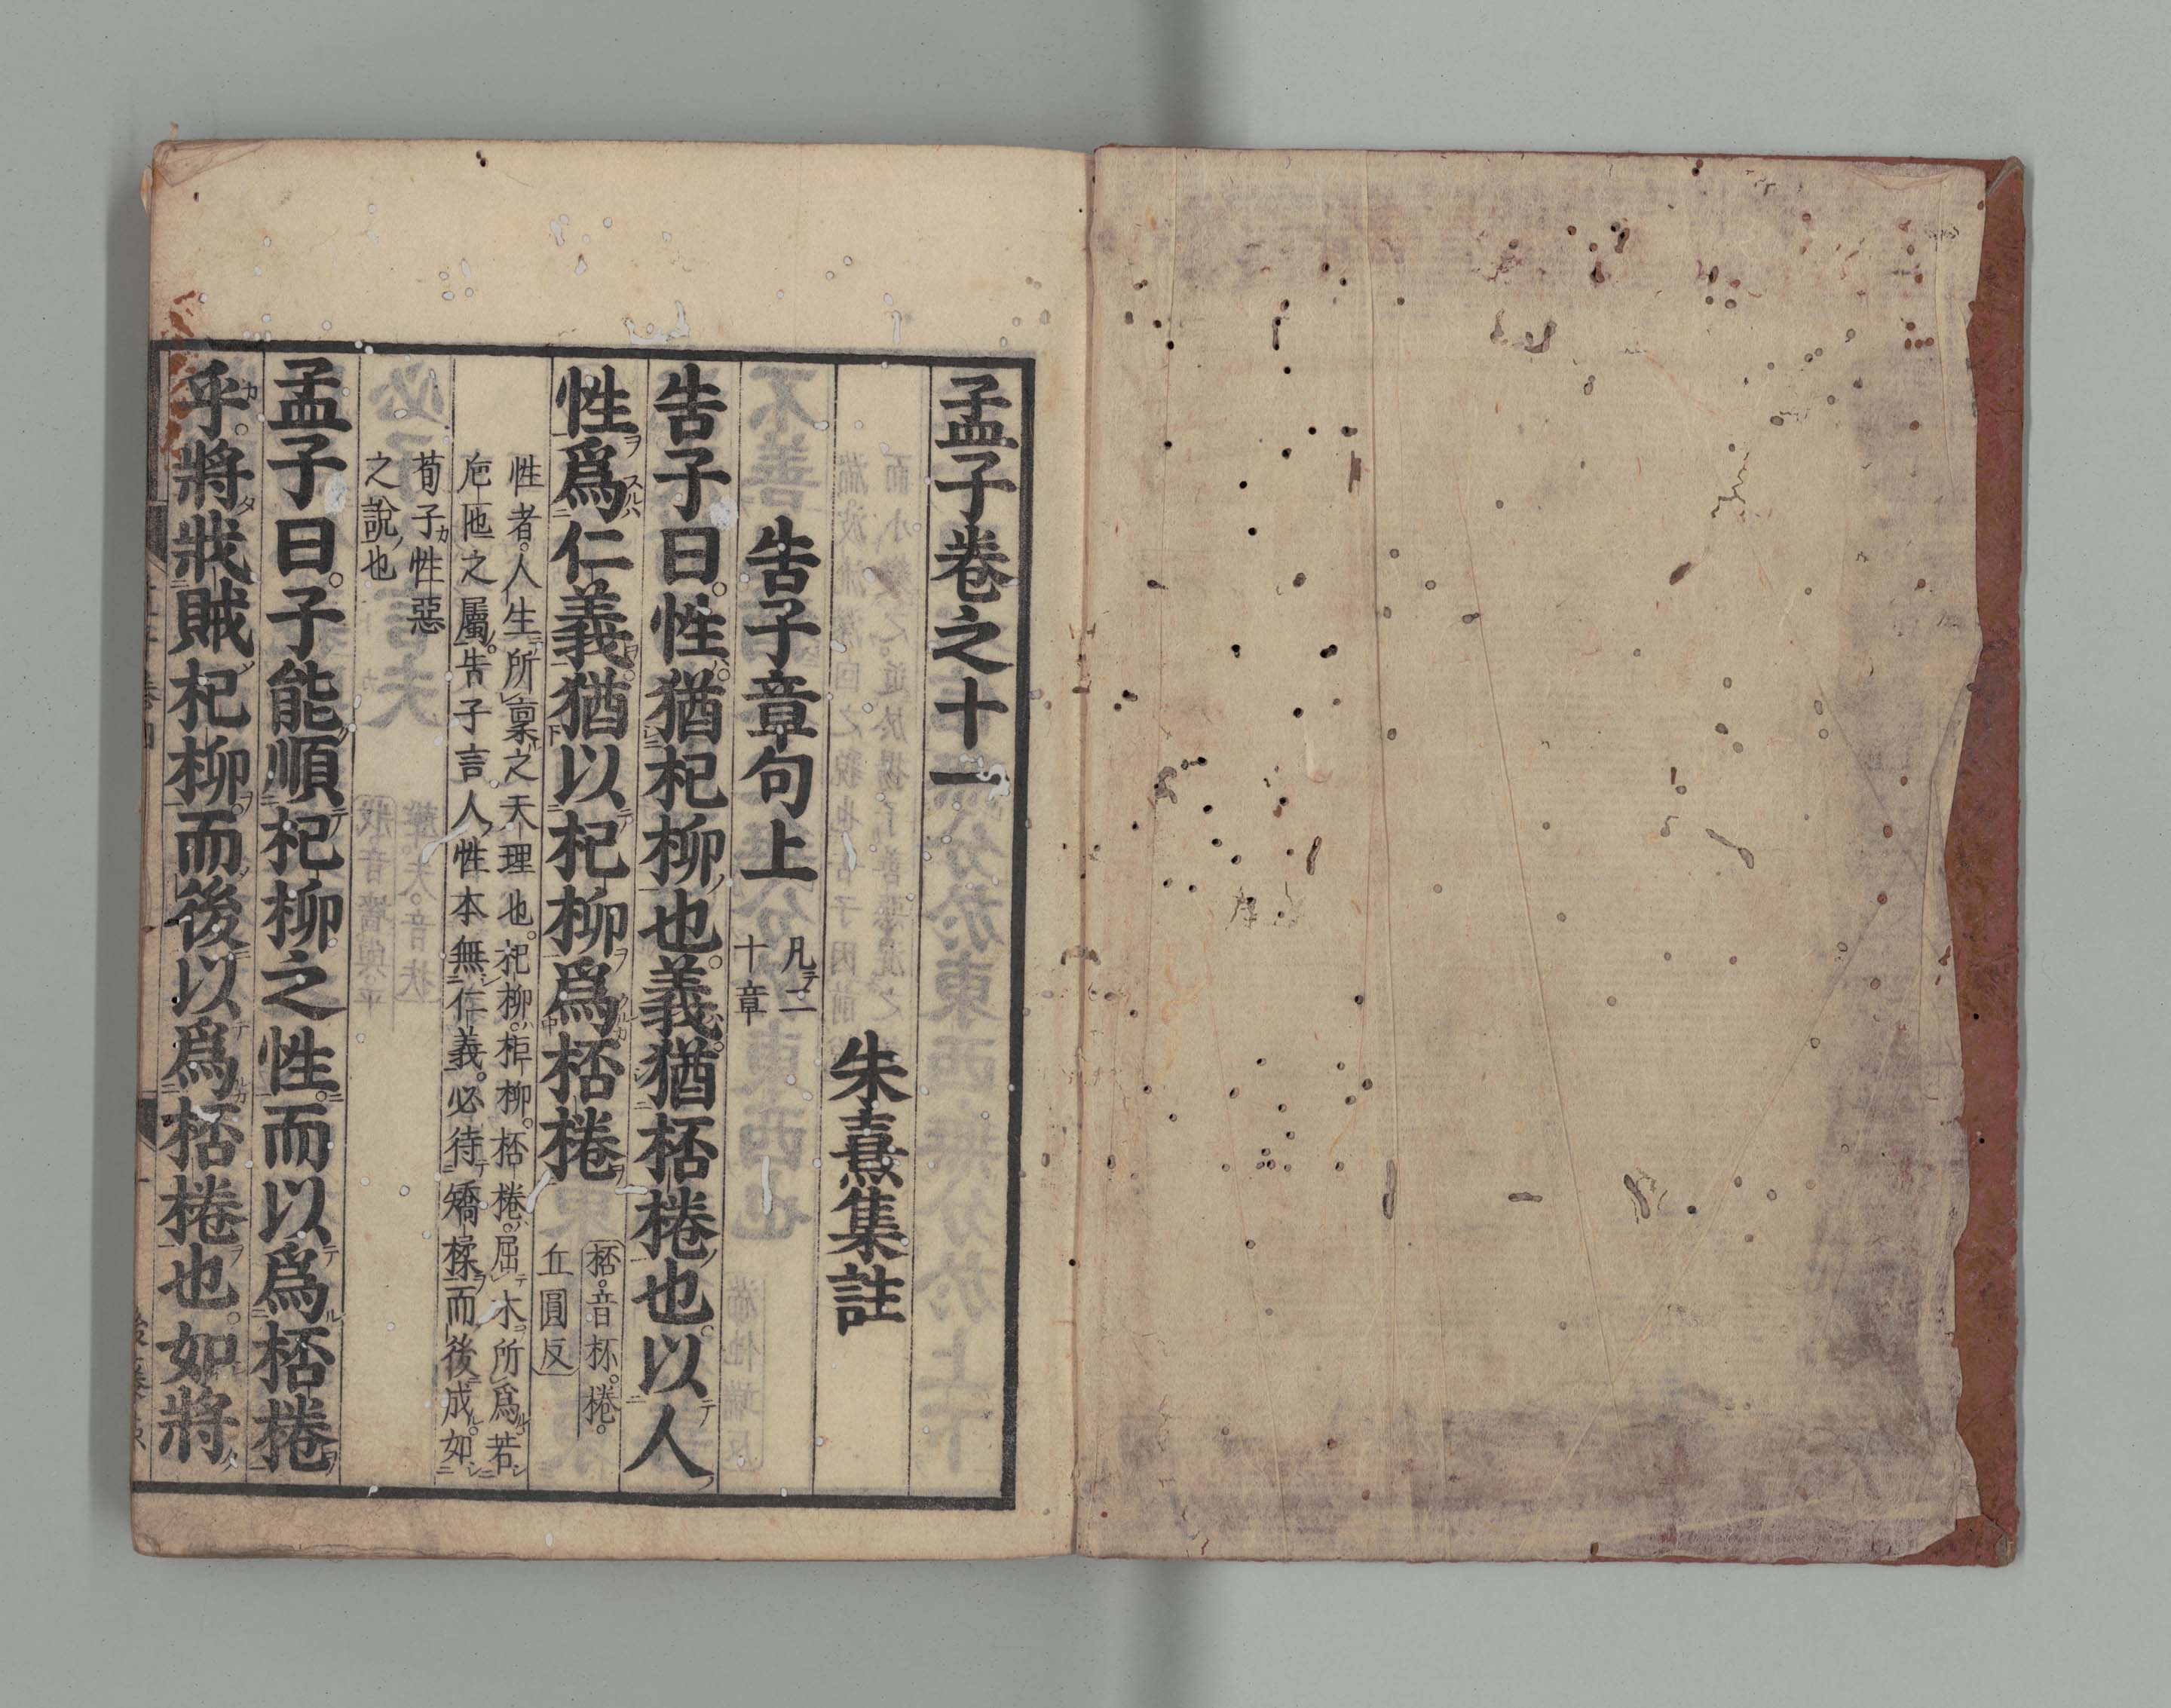 孟子卷之十一
朱熹集註
告子章句上
凡二
十章
告子曰性猶杞柳也義猶桮棬也以人
性爲仁義猶以杞柳爲桮棬
桮音杯棬
丘圓反
性者人生所稟之天理也杞柳柜柳桮棬屈木所爲若
巵匜之屬告子言人性本無仁義必待矯揉而後成如
荀子性惡
之說也
孟子曰子能順杞柳之性而以爲桮棬
乎將戕賊杞柳而後以爲桮棬也如將